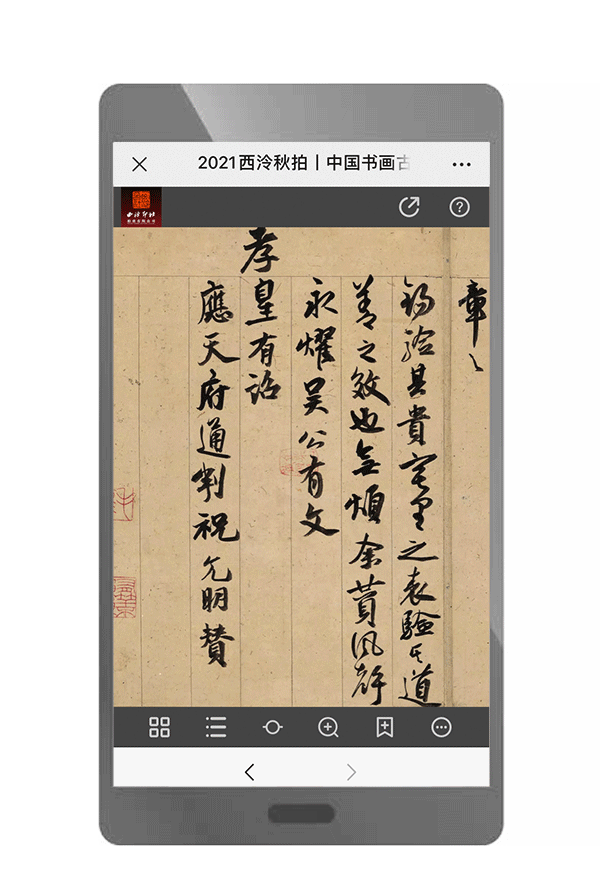 2021西泠秋拍丨中国书画古
西泠印社
章々
貴里之表驗其道
善之效也無煩余
永耀吴公有文
孝
皇有詔
應天府通判祝允明贊